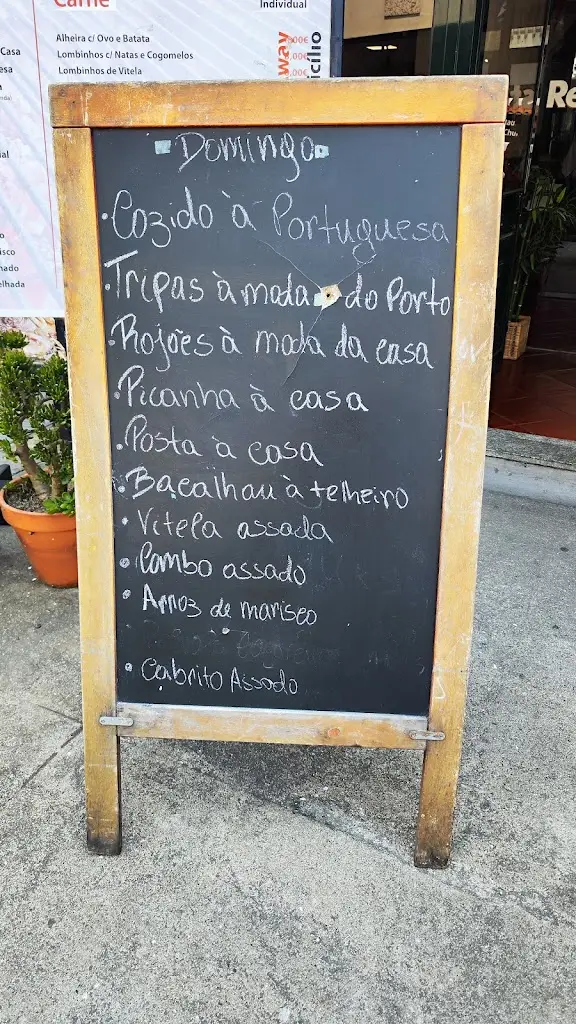 Carne
Individual
Alheira c/ Ovo e Batata
Lombinhos c/ Natas e Cogomelos
Lombinhos de Vitela
way
icílio
Casa
Re
Domingo
• Cozido à Portuguesa
• Tripas à moda do Porto
• Rojões à moda da casa
• Picanha à casa
• Posta à casa
• Bacalhau à telheiro
• Vitela assada
• Lombo assado
• Arroz de marisco
• Cabrito Assado